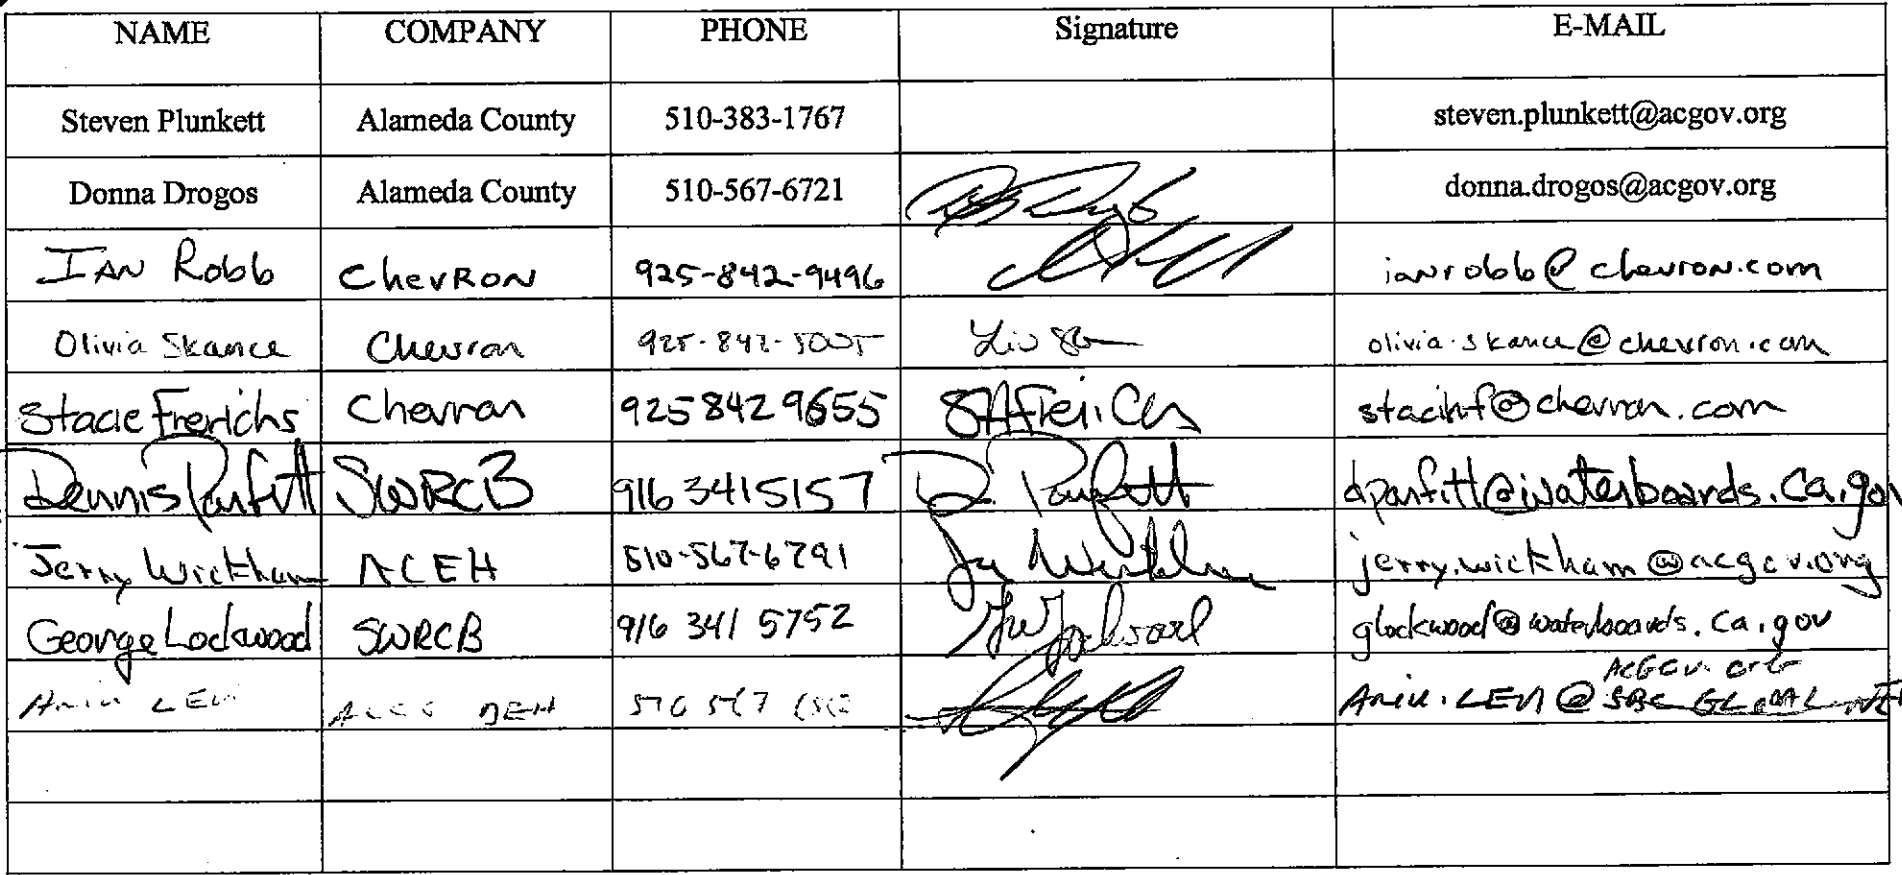 NAME COMPANY PHONE Signature E-MAIL
Steven Plunkett Alameda County 510-383-1767 steven.plunkett@acgov.org
Donna Drogos Alameda County 510-567-6721 donna.drogos@acgov.org
IAN Robb ChevRON 925-842-9496 ianrobb@chevron.com
Olivia Skance Chevron olivia.skance@chevron.com
Stacie Frerichs Chevron 925 842 9655
Dennis Parfitt SWRCB 916 341 5157 D. Parfitt dparfitt@waterboards.ca.gov
Jerry Wickham ACEH 510-567-6791 jerry.wickham@acgov.org
George Lockwood SWRCB 916 341 5752 glockwood@waterboards.ca.gov
ACGOV.ORG
@SBC GLOBAL.NET